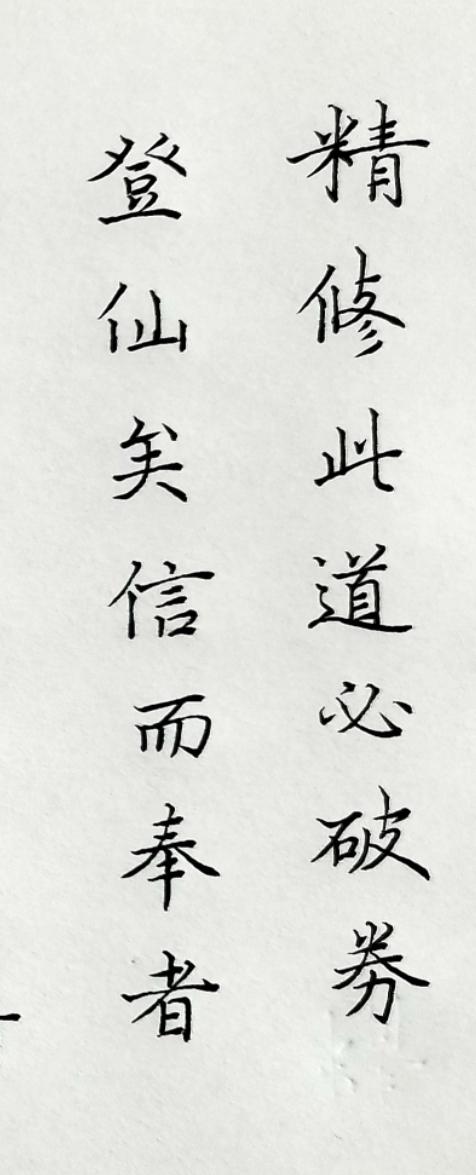 精修此道必破券
登仙矣信而奉者